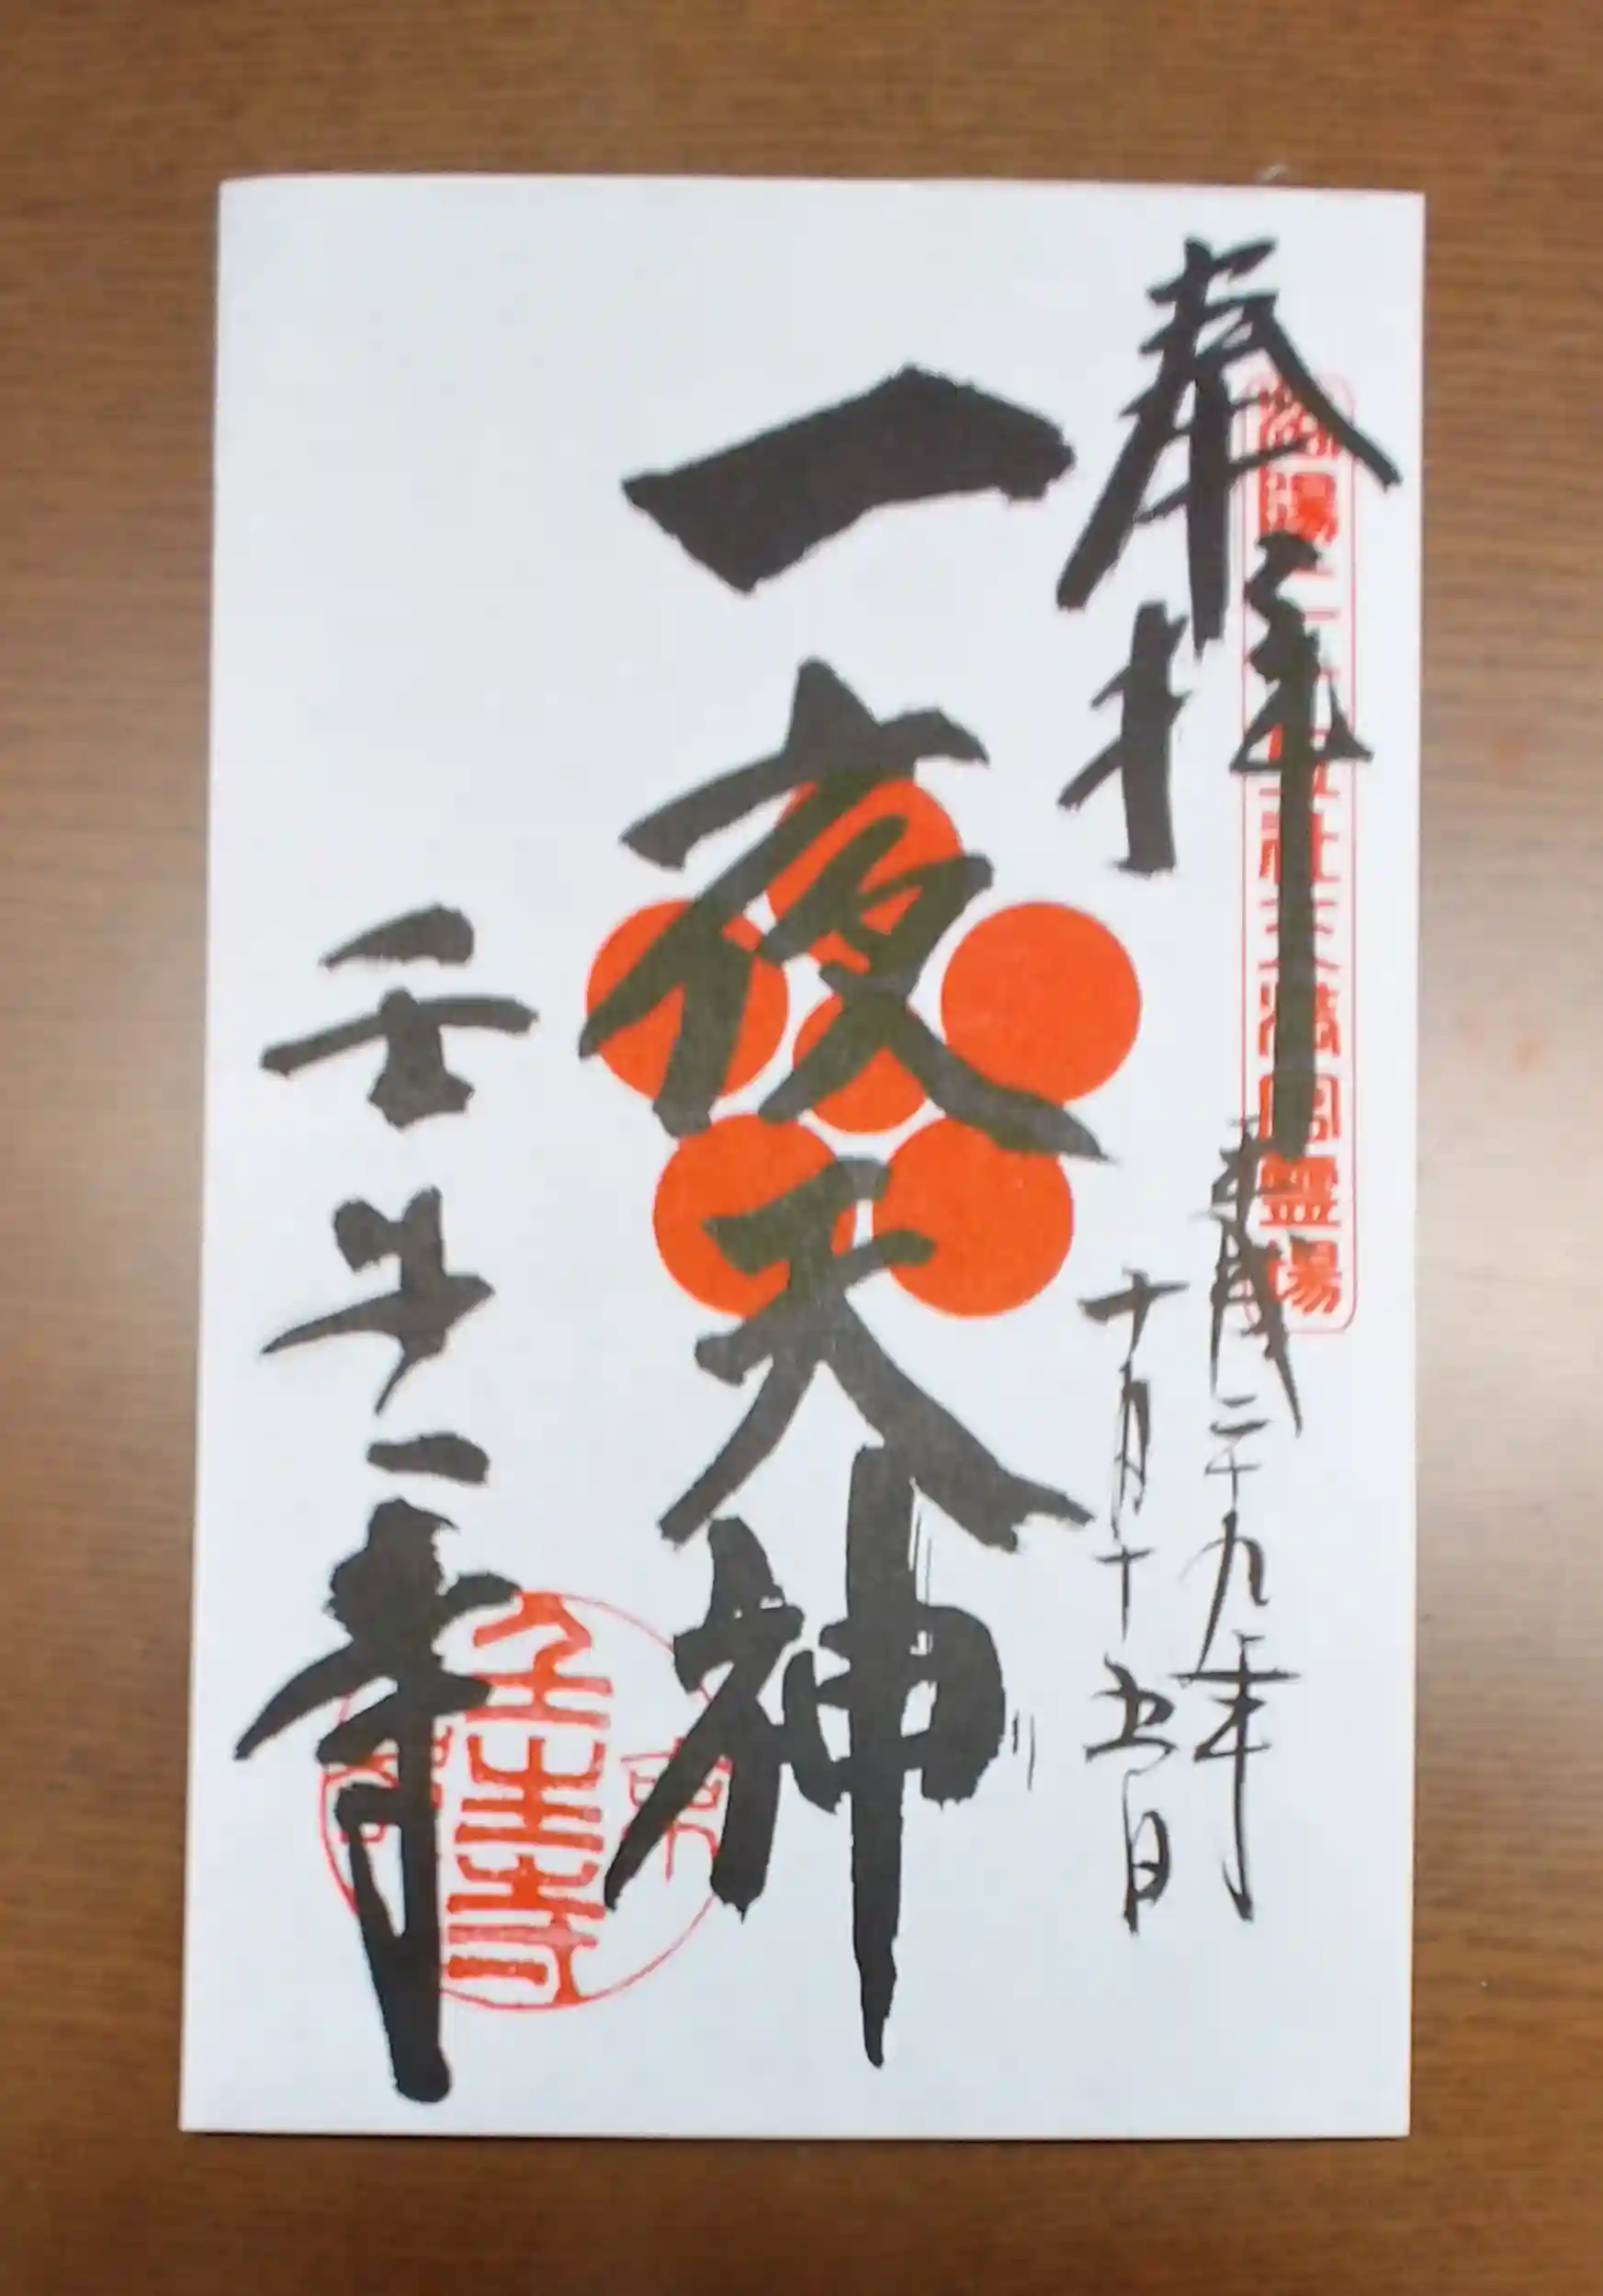 洛陽二十五社天満宮霊場
奉拝
平成二十九年
十月十五日
一夜天神
壬生寺
壬生寺